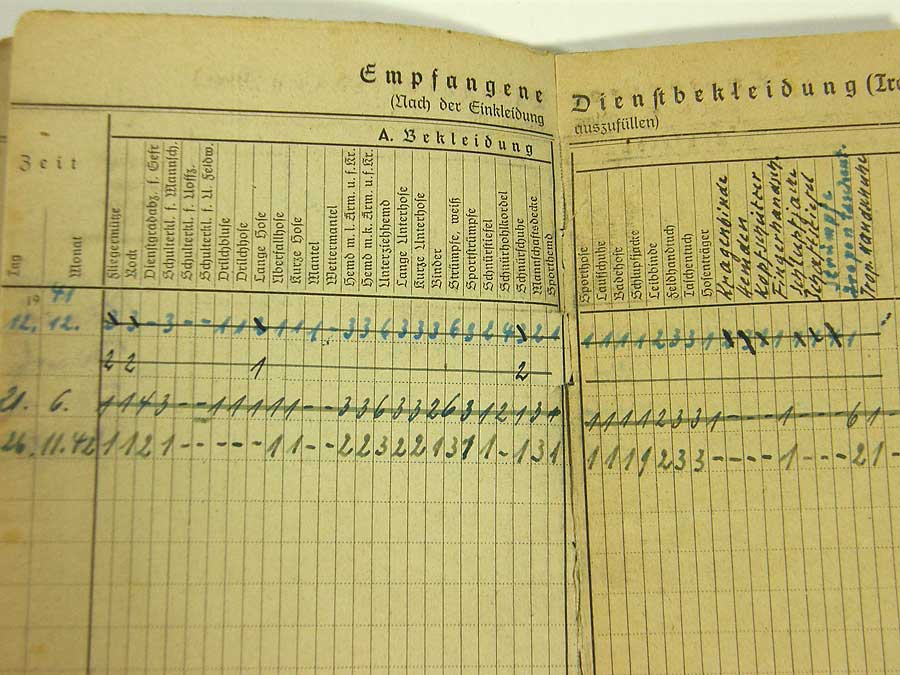 Empfangene Dienstbekleidung (Tro
(Nach der Einkleidung auszufüllen)
A. Bekleidung
Zeit
Tag
Monat
Fliegermütze
Rock
Dienstgradabz. f. Gefr
Schulterkl. f. Mannsch.
Schulterkl. f. Uoffz.
Schulterkl. f. U. Feldw.
Drillchbluse
Drillchhose
Lange Hose
Überfallhose
Kurze Hose
Mantel
Wettermantel
Hemd m. l. Arm. u. f. Kr.
Hemd m. k. Arm. u. f. Kr.
Unterziehhemd
Lange Unterhose
Kurze Unterhose
Binder
Strümpfe, weiß
Sportstrümpfe
Schnürstiefel
Schnürhohlkordel
Schnürschuhe
Mannschaftsdecke
Sporthemd
Sporthose
Laufschuhe
Badehose
Schlupfjacke
Leibbinde
Feldhandtuch
Taschentuch
Hosenträger
Kragenbinde
Hemden
Kopfschützer
Fingerhandsch
Schlupfjacke
Strümpfe
Trop. Handtücher
19 41
12. 12.
2 2 1 2
21. 6.
1 1 4 3 - - 1 1 1 1 1 - - 3 3 6 3 3 2 6 3 1 2 1 3 1 1 1 1 1 2 3 3 1 - - - 1 - - - 6 1 -
26. 11. 42 1 1 2 1 - - - - - 1 1 - - 2 2 3 2 2 1 3 1 1 - 1 3 1 1 1 1 1 2 3 3 - - - - 1 - - - 2 1 -